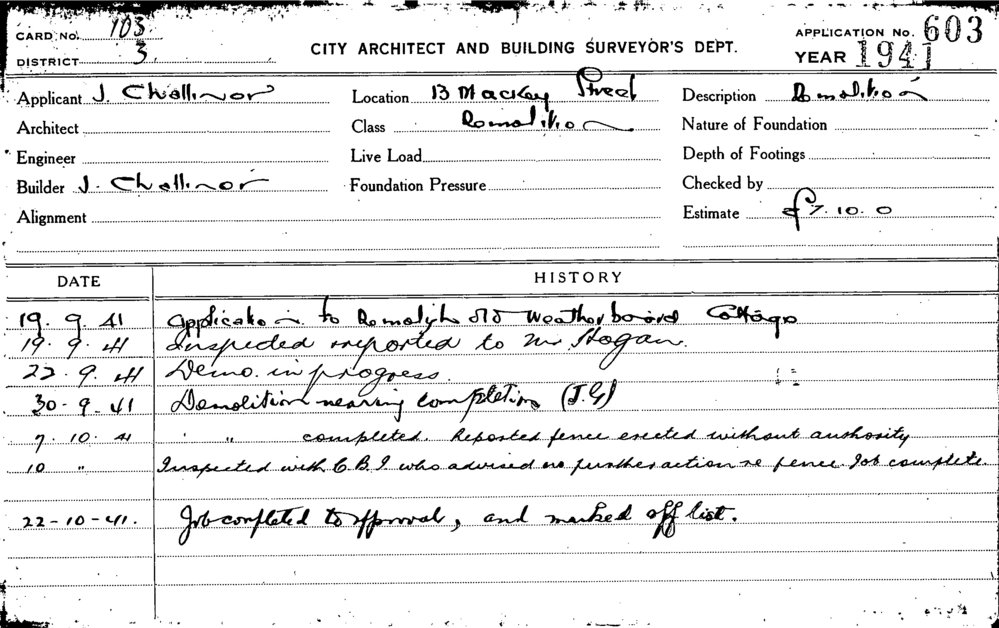 CARD No. 103
APPLICATION No. 603
DISTRICT 3
CITY ARCHITECT AND BUILDING SURVEYOR'S DEPT.
YEAR 1941
Applicant J. Challinor Location 13 Mackey Street Description Demolition
Architect Class Demolition Nature of Foundation
Engineer Live Load Depth of Footings
Builder J. Challinor Foundation Pressure Checked by
Alignment Estimate £7.10.0
DATE HISTORY
19. 9. 41 Application to Demolish old weatherboard Cottage
19. 9. 41 Inspected reported to Mr Hogan.
22. 9. 41 Demo. in progress.
30-9-41 Demolition nearing completion (J.G)
7. 10. 41 " " completed. Reported fence erected without authority
10 " Inspected with C.B.I who advised no further action re fence. Job complete
22-10-41. Job completed to approval, and marked off list.